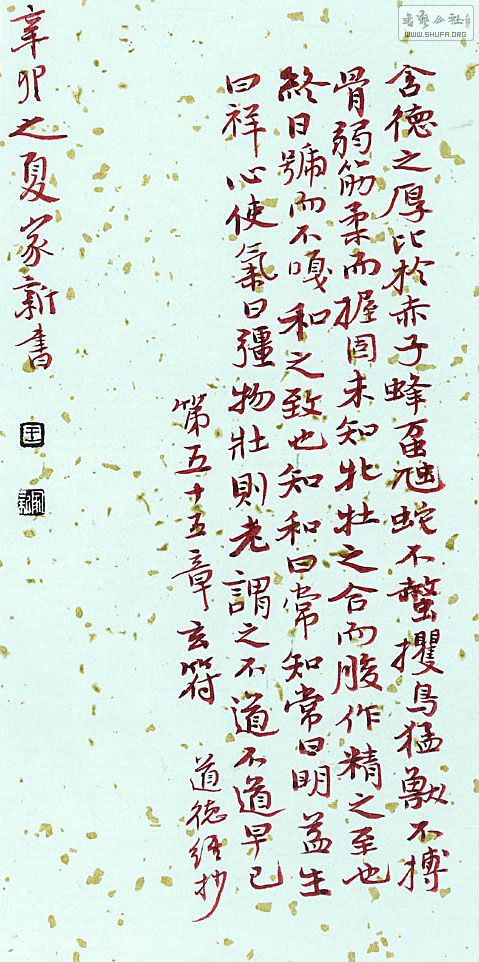 書藝公社
WWW.SHUFA.ORG
含德之厚比於赤子蜂虿虺蛇不螫攫鳥猛獸不搏
骨弱筋柔而握固未知牝牡之合而朘作精之至也
終日號而不嗄和之致也知和曰常知常曰明益生
曰祥心使氣曰彊物壯則老謂之不道不道早已
第五十五章玄符
道德经抄
辛卯之夏家新書
王